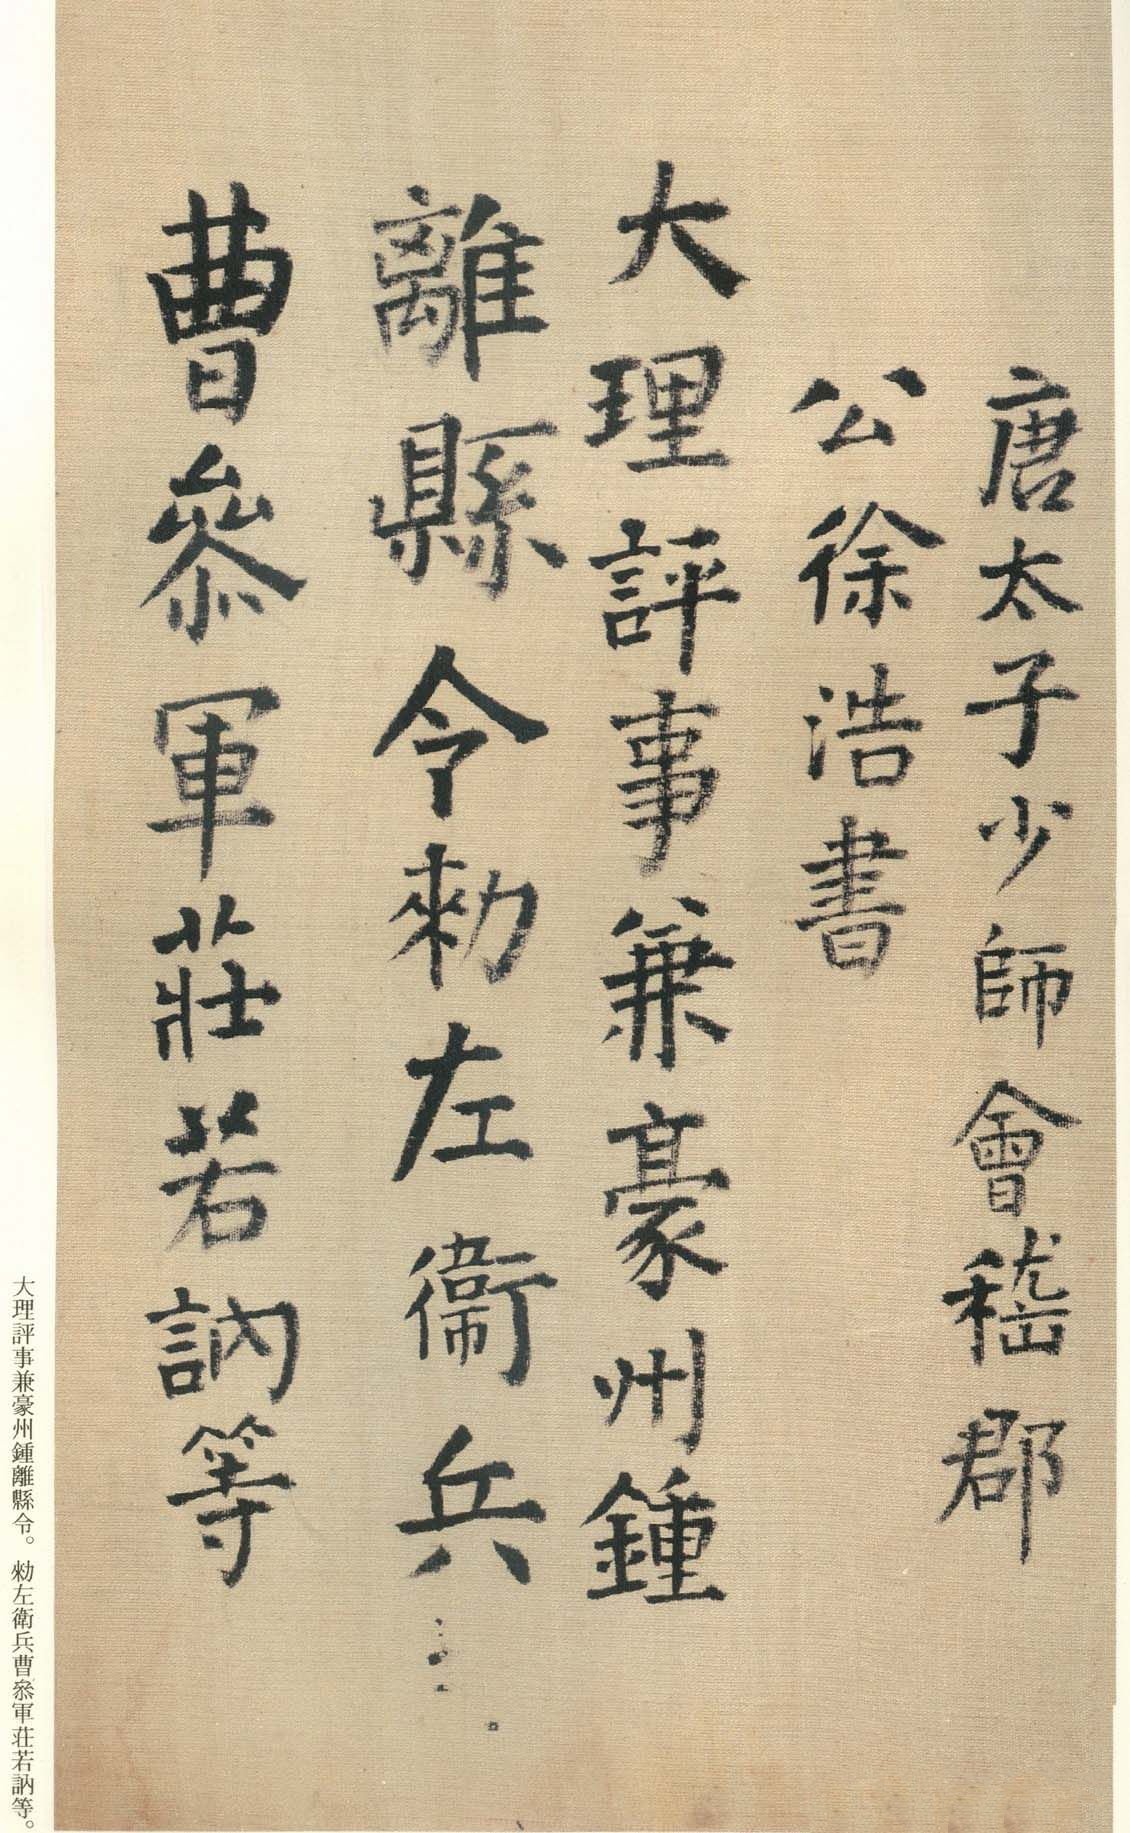 唐太子少師會嵇郡
公徐浩書
大理評事兼豪州鍾
離縣令勑左衞兵
曹叅軍莊若訥等
大理評事兼豪州鍾離縣令。勑左衛兵曹叅軍莊若訥等。